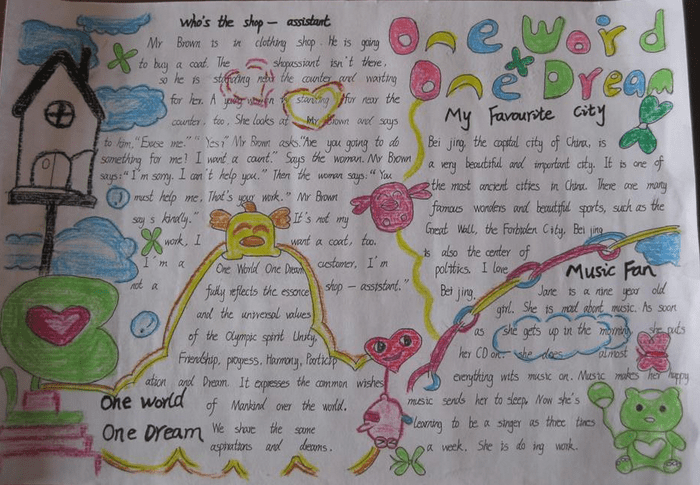 Who's the shop - assistant
Mr Brown is in clothing shop. He is going
to buy a coat. The shopassiant isn't there,
so he is near the counter and waiting
for her. A is for near the
counter, too. She looks at Mr Brown and says
to him, "Excuse me." "Yes?" Mr Brown asks. "Are you going to do
something for me? I want a count." Says the woman. Mr Brown
says: "I'm sorry. I can't help you." Then the woman says: "You
must help me. That's your work." Mr Brown
say s kindly." It's not my
work, I want a coat, too.
I'm a customer, I'm
not a shop - assistant."
One World One Dream
fully reflects the essence
and the universal values
of the Olympic spirit Unity,
Friendship, progress, Harmony, Particip
ation and Dream. It expresses the common wishes
of Mankind over the world.
We share the same
aspirations and dreams.
One World
One Dream
One Word
One Dream
My Favourite City
Bei jing, the capital city of China, is
a very beautiful and important city. It is one of
the most ancient cities in China. There are many
famous wonders and beautiful sports, such as the
Great Wall, the Forbiden City. Bei jing
is also the center of
politics. I love
Bei jing.
Music Fan
Jane is a nine year old
girl. She is mad about music. As soon
as she gets up in the morning, she puts
her CD on. she does almost
everything wits music on. Music makes her happy
music sends her to sleep. Now she's
learning to be a singer as three times
a week. She is do ing work.